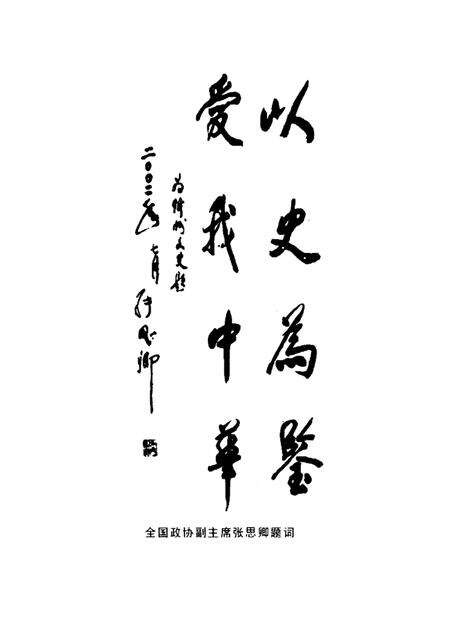 以史為鑒
愛我中華
为儋州文史题
二〇〇二年七月
张思卿
全国政协副主席张思卿题词